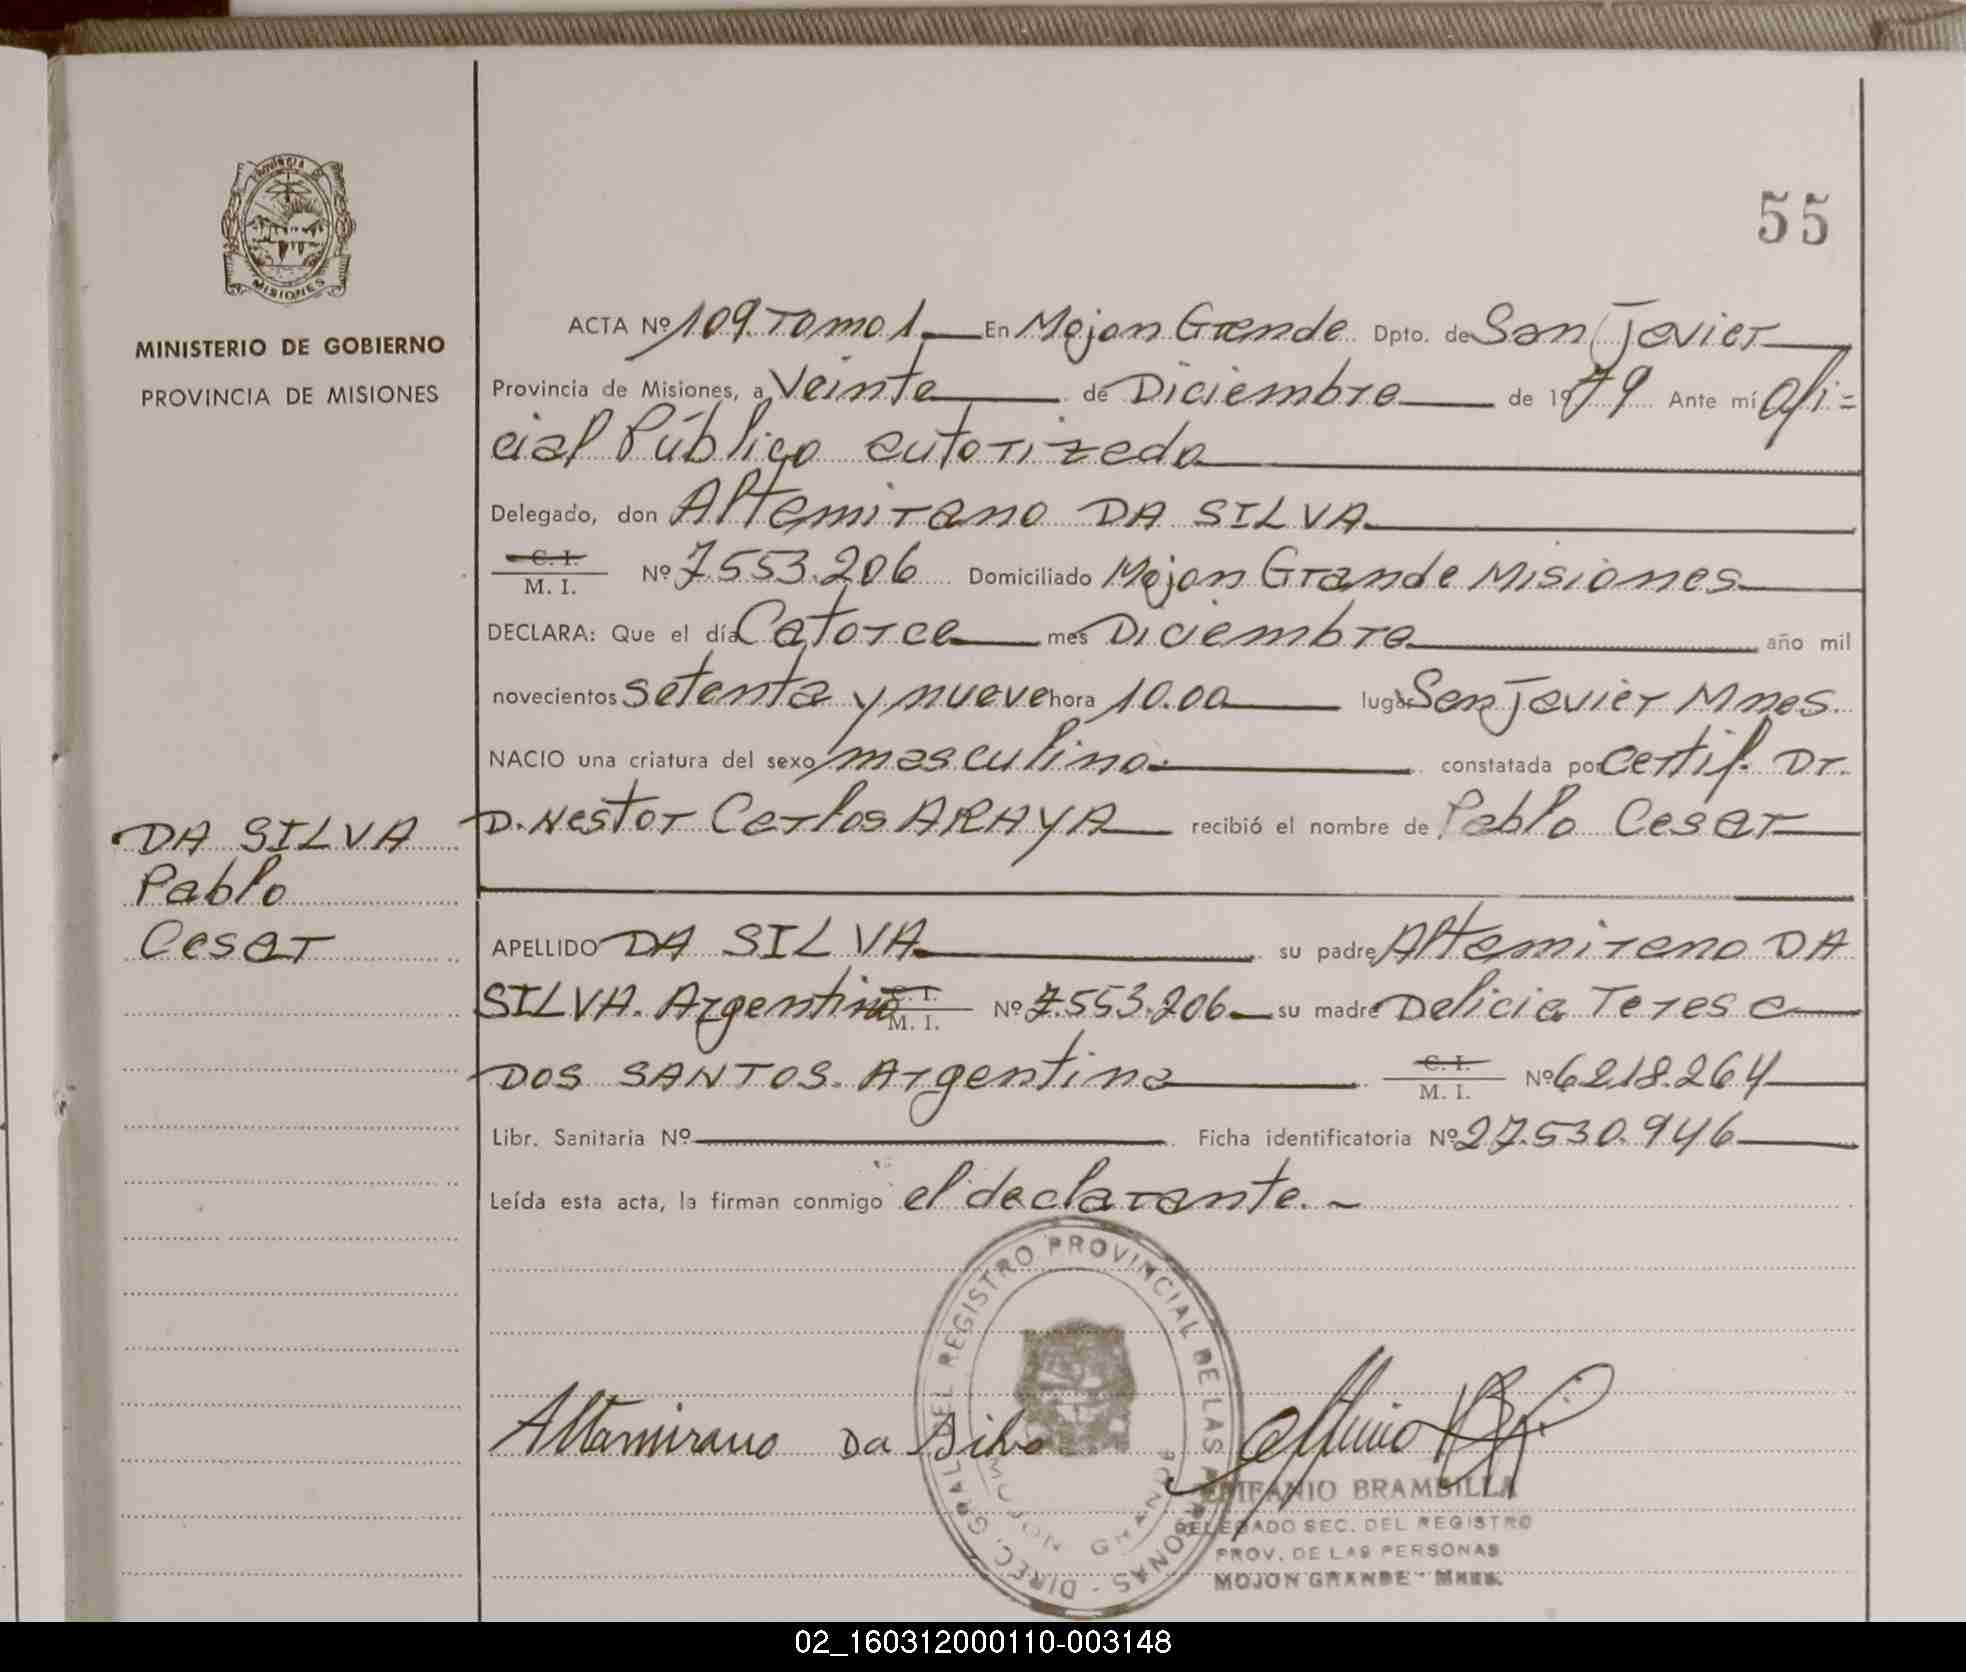 PROVINCIA DE
MISIONES
MINISTERIO DE GOBIERNO
PROVINCIA DE MISIONES
55
ACTA Nº 109. Tomo 1. En Mojon Grande Dpto. de San Javier
Provincia de Misiones, a Veinte de Diciembre de 1979 Ante mí Ofi=
cial Público autorizado
Delegado, don Altamirano DA SILVA
C. I.
M. I. Nº 7.553.206 Domiciliado Mojon Grande Misiones
DECLARA: Que el día Catorce mes Diciembre año mil
novecientos setenta y nueve hora 10.00 lugar San Javier Mnes.
NACIO una criatura del sexo masculino. constatada por Certif. Dr.
D. Nestor Carlos ARAYA recibió el nombre de Pablo Cesar
DA SILVA
Pablo
Cesar
APELLIDO DA SILVA su padre Altamirano DA
SILVA. Argentino C. I. M. I. Nº 7.553.206 su madre Delicia Teresa
DOS SANTOS. Argentina C. I. M. I. Nº 6.218.264
Libr. Sanitaria Nº Ficha identificatoria Nº 27.530.946
Leída esta acta, la firman conmigo el declarante. -
DIREC. GRAL. DEL REGISTRO PROVINCIAL DE LAS PERSONAS -
MOJON GRANDE
Altamirano Da Silva
EPIFANIO BRAMBILLA
DELEGADO SEC. DEL REGISTRO
PROV. DE LAS PERSONAS
MOJON GRANDE - Mnes.
02_160312000110-003148